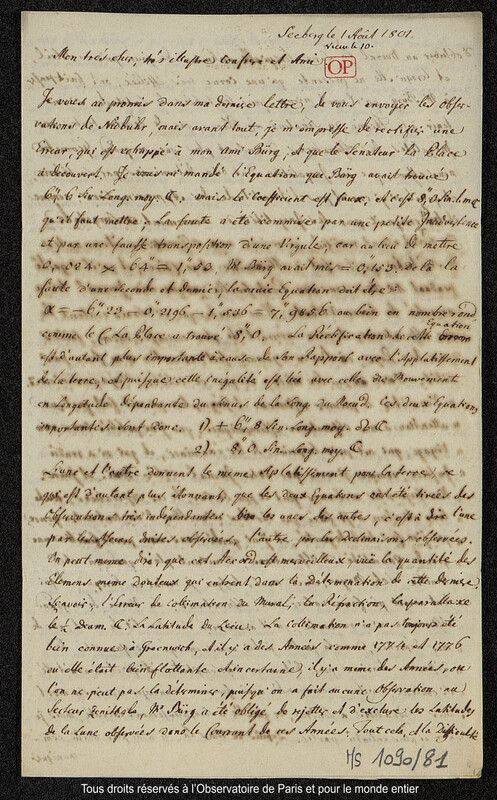 Seeberg le 1 Août 1801.
Vieux le 10.
Mon très cher, très illustre confrere et Ami
OP
Je vous ai promis dans ma derniere lettre, de vous envoyer les Obser-
vations de Niebuhr, mais avant tout, je m'empresse de rectifier une
Erreur, qui est echappé a mon ami Bürg, et que le Sénateur la Place
a découvert. Je vous ai mandé l'Equation que Bürg avait trouvé
6", 6 Sin Long. moy. ☾, mais le coefficient est faux, et c'est 8",0 Sin. l. m. ☾
qu'il faut mettre. La faute a été commise par une petite Inadvertence
et par une fausse transposition d'une Virgule, car au lieu de mettre
0,024 × 64" = 1",53, Mr Bürg avait mis = 0",153. de là la
faute d'une seconde et demie, la vraie Equation doit être:
x = - 6",23 - 0",2196 - 1",536 = 7",9856 ou bien en nombre rond
comme le C. La Place a trouvé 8",0. La Réctification de cette
Equation
est d'autant plus importante à cause de son Rapport avec l'Applatissement
de la terre, et puisque cette inégalité est liée avec celle du Mouvement
en Longitude dépendante du Sinus de la Long. du Noeud. Ces deux Equations
importantes sont donc. 1) + 6", 8 Sin. Long. moy. ☊ ☾
2) 8",0 Sin. Long. moy. ☾
L'une et l'autre donnent le meme Aplatissement pour la terre, ce
qui est d'autant plus étonnant, que les deux Equations ont été tirées des
Observations très independantes les unes des autres, c'est à dire l'une
par les Ascens. droites observées, l'autre par les Declinaisons observées.
On peut meme dire, que cet Accord est merveilleux vuë la quantité des
Elemens meme douteux qui entrent dans la Détermination de cette derniere
sçavoir, l'Erreur de collimation du Mural, la Réfraction, la parallaxe
le ½ Diam. ☾, la Latitude du Lieu. La collimation n'a pas toujours été
bien connue à Greenwich, et il y a des Années comme 1774 et 1776
ou elle était bien flottante et incertaine, il y a meme des Années, ou
l'on ne peut pas la déterminer, puisqu'on a fait aucune Observation au
Secteur Zenithale, Mr Bürg a été obligé de rejetter et d'exclure les Latitudes
de la Lune observées dans le Courrant de ces Années. Tout cela, et la difficulté
MS 1090/81
Tous droits réservés à l'Observatoire de Paris et pour le monde entier